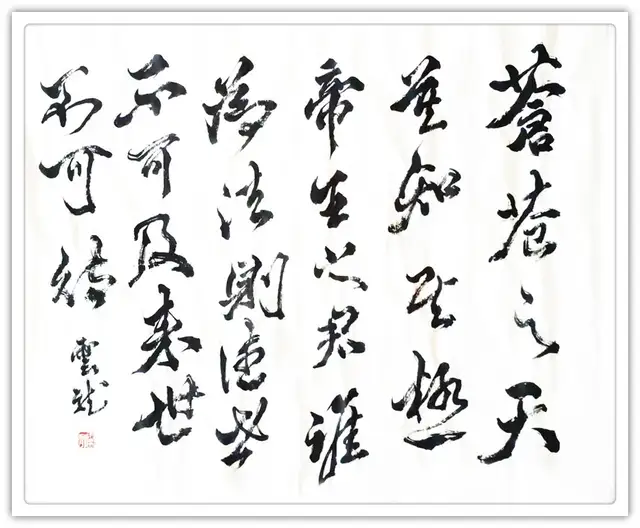 蒼蒼之天
莫知其極
帝王之君誰
為法則往世
不可及来世
不可待
雲龍